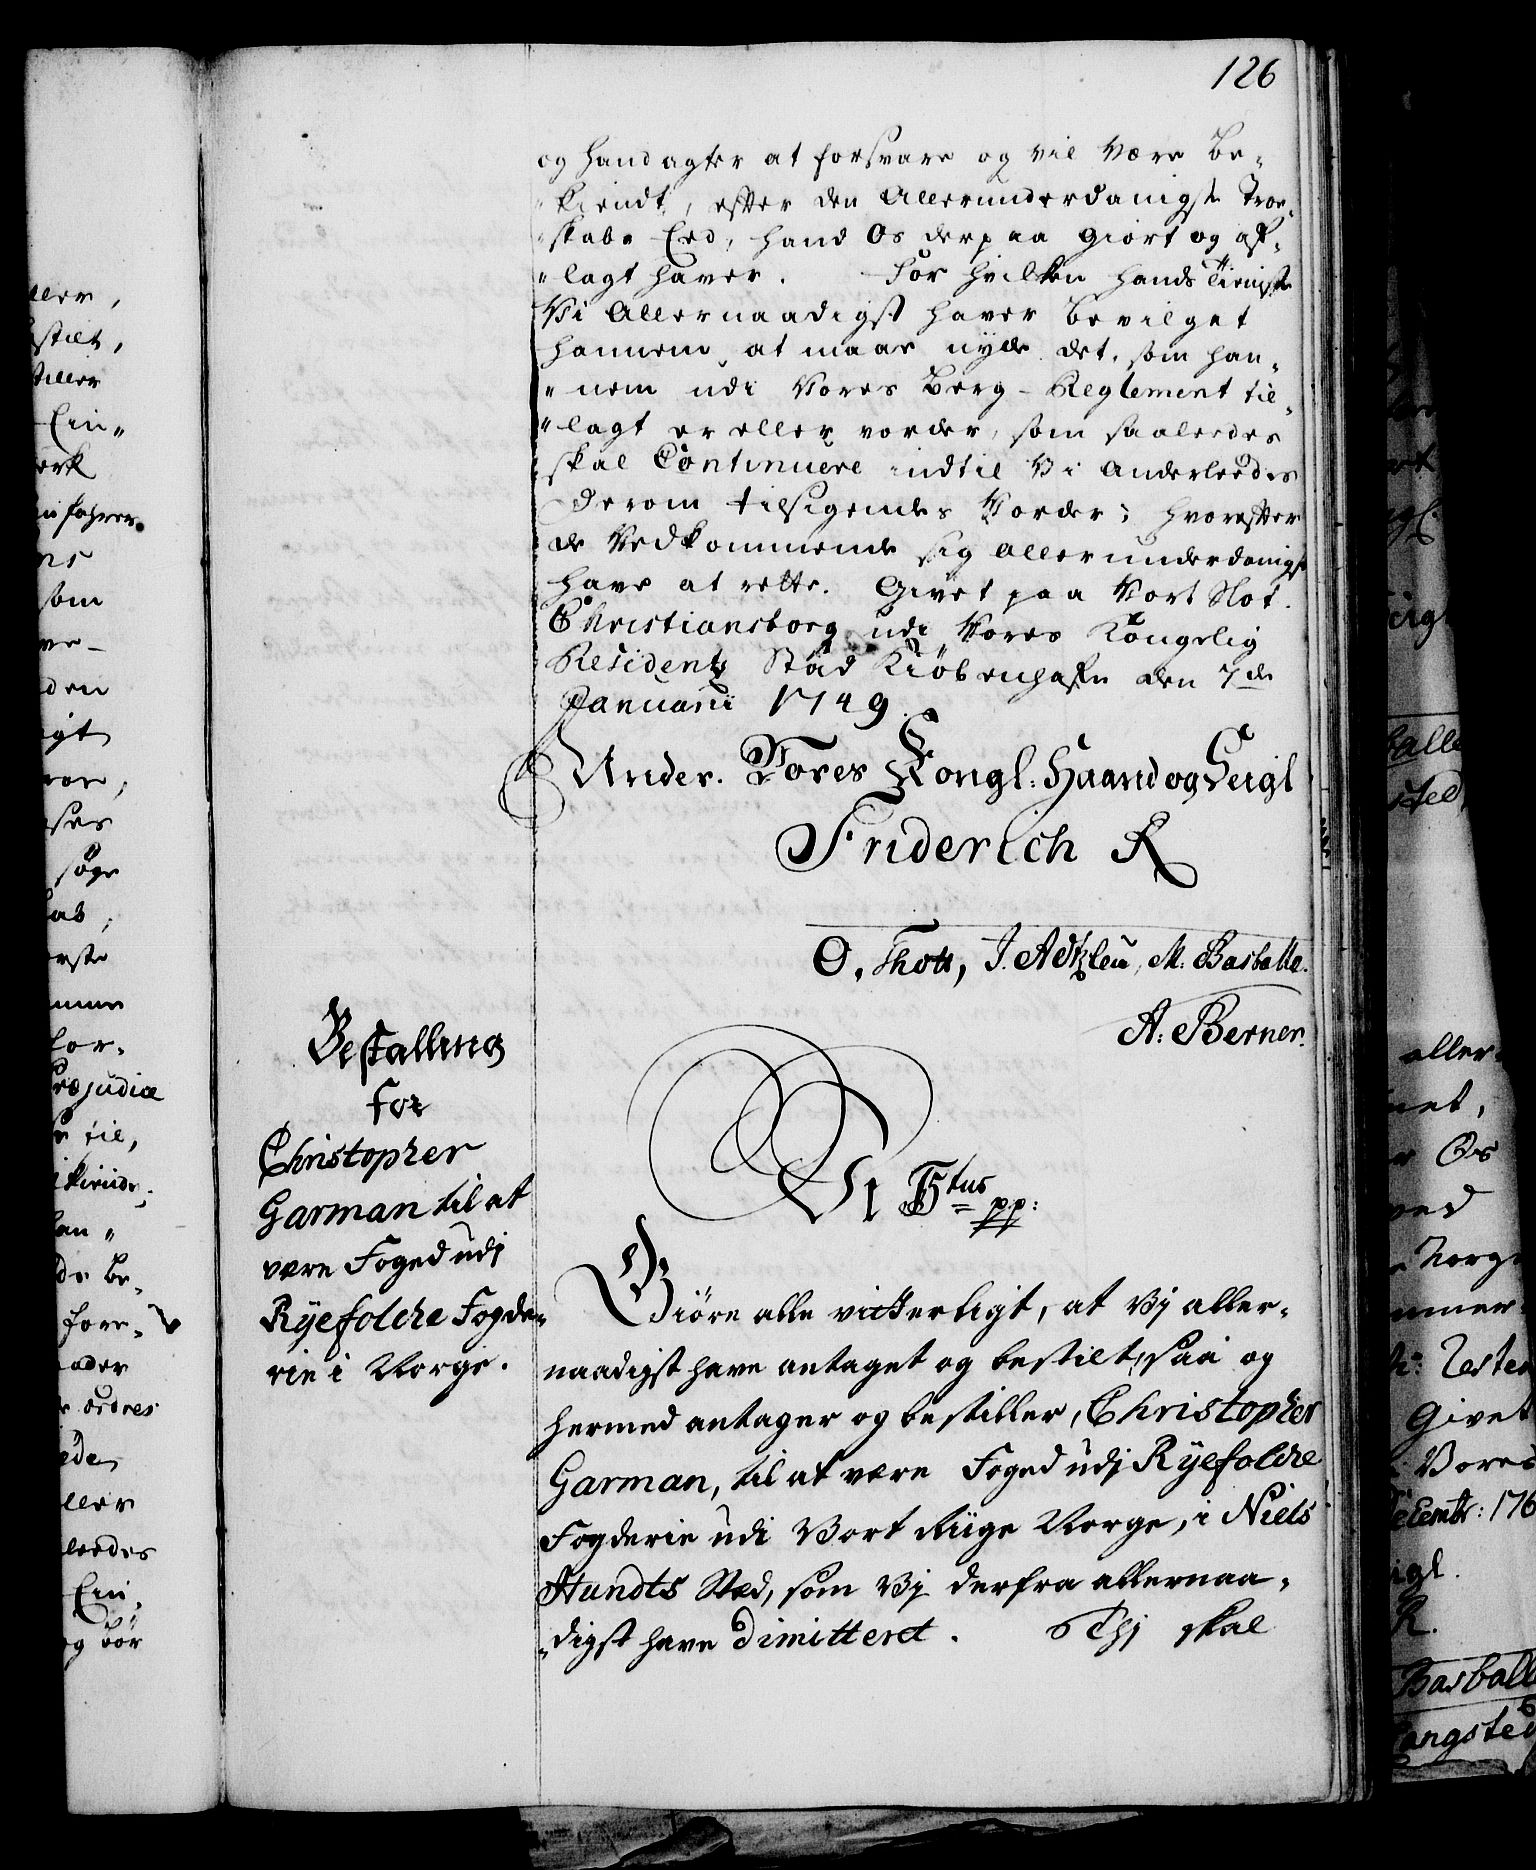 126
og hand agter at forsvare og vil være be-
kiendt, efter den Allerunderdanigste Troe-
skabs Eed, hand Os derpaa giort og af-
lagt haver. For hvilken hands Tieniste
Vi Allernaadigst haver bevilget
hannem, at maae nyde det, som han-
nem udi Vores Berg-Reglement til-
lagt er eller vorder, som saaledes
skal Continuere indtil Vi Anderleedes
derom tilsigendes Vorder; hvorefter
de Vedkommende sig allerunderdanigst
have at rette. Givet paa Vort Slot
Christiansborg udi Vores Kongelig
Residentz Stad Kiöbenhafn den 7de
Januarii 1749.
Under Vores Kongl: Haand og Seigl
Friderich R
O. Thott, J. Adtzleu, M. Basballe.
A: Berner.
Bestalling
for
Christopher
Garman til at
være Foged udj
Ryefolche Fogde-
rie i Norge.
Vi F5tus pp:
Giöre alle vitterligt, at Vj aller-
naadigst have antaget og bestilt, saa og
hermed antager og bestiller, Christopher
Garman, til at være Foged udj Ryefolche
Fogderie udi Vort Riige Norge, i Niels
Hundts Sted, som Vj derfra allernaa-
digst have dimitteret. Thj skal